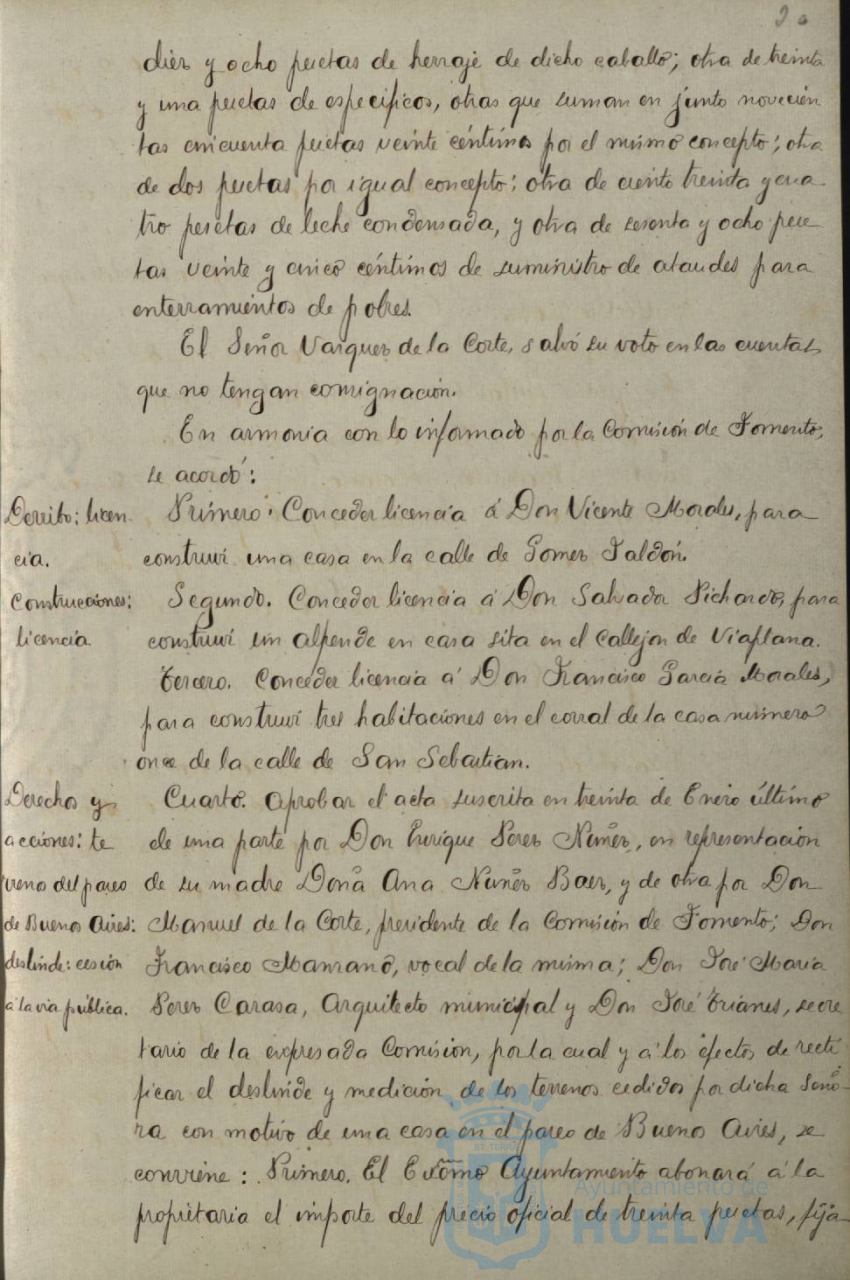 diez y ocho pesetas de herraje de dicho caballo; otra de treinta
y una pesetas de especificos, otras que suman en junto novecien
tas cincuenta pesetas veinte céntimos por el mismo concepto; otra
de dos pesetas por igual concepto; otra de ciento treinta y cua-
tro pesetas de leche condensada, y otra de sesenta y ocho pese
tas veinte y cinco céntimos de suministro de ataudes para
enterramientos de pobres.
El Señor Vazquez de la Corte, salvó su voto en las cuentas
que no tengan consignación.
En armonia con lo informado por la Comisión de Fomento,
se acordó:
Derribo: licen
cia.
Primero. Conceder licencia á Don Vicente Morales, para
construir una casa en la calle de Gomez Jaldón.
Construcciones:
licencia.
Segundo. Conceder licencia á Don Salvador Pichardo, para
construir un alpende en casa sita en el Callejon de Viaplana.
Tercero. Conceder licencia á Don Francisco Garcia Morales,
para construir tres habitaciones en el corral de la casa número
once de la calle de San Sebastian.
Derechos y
acciones: te
rreno del paseo
de Buenos Aires:
deslinde: cesión
á la via pública.
Cuarto. Aprobar el acta suscrita en treinta de Enero último
de una parte por Don Enrique Perez Nuñez, en representación
de su madre Doña Ana Nuñez Baez, y de otra por Don
Manuel de la Corte, presidente de la Comisión de Fomento; Don
Francisco Manzano, vocal de la misma; Don José Maria
Perez Carasa, Arquitecto municipal y Don José Trianes, secre
tario de la expresada Comision, por la cual y á los efectos de recti
ficar el deslinde y medición de los terrenos cedidos por dicha Seño-
ra con motivo de una casa en el paseo de Buenos Aires, se
conviene: Primero. El Excmo Ayuntamiento abonará á la
propietaria el importe del precio oficial de treinta pesetas, fija-
Ayuntamiento de
HUELVA